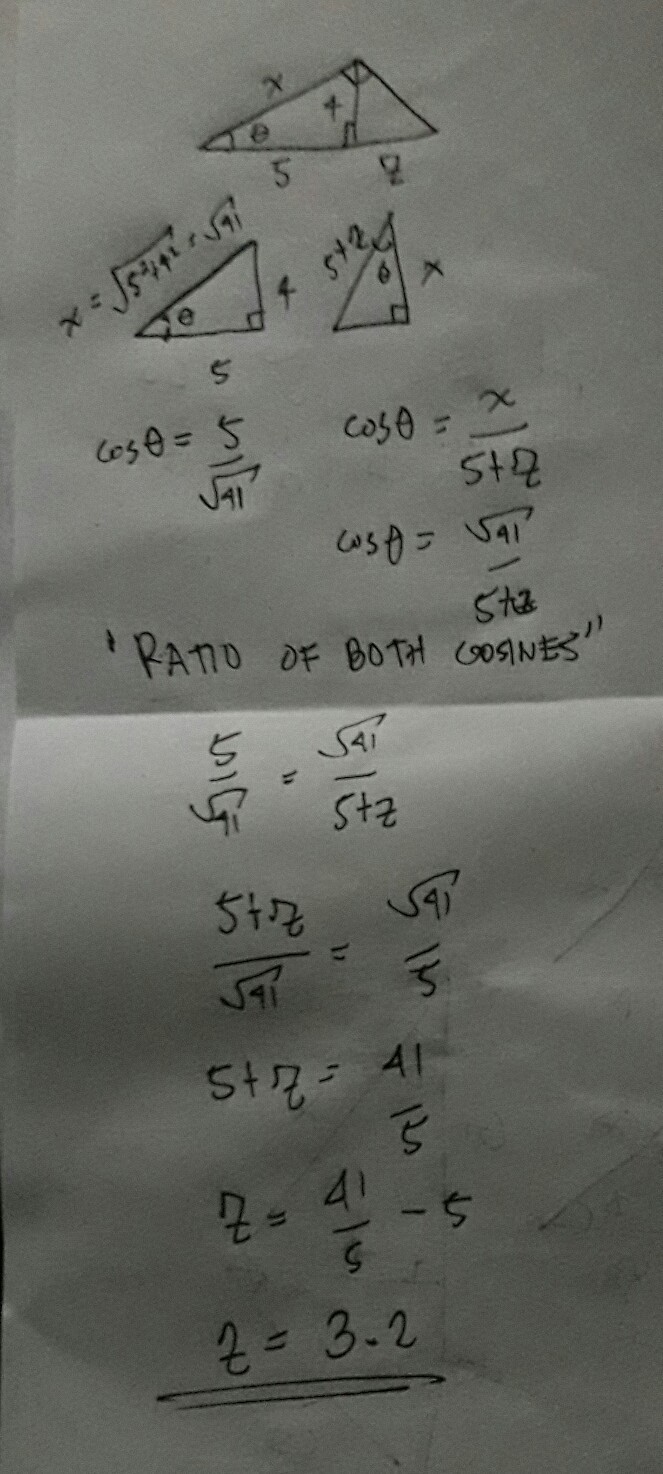 x
4
θ
5 z
x = √5²+4² = √41
θ
4
5
5+z
θ
x
cosθ = 5/√41 cosθ = x/5+z
cosθ = √41/5+z
"RATIO OF BOTH COSINES"
5/√41 = √41/5+z
5+z/√41 = √41/5
5+z = 41/5
z = 41/5 - 5
z = 3.2